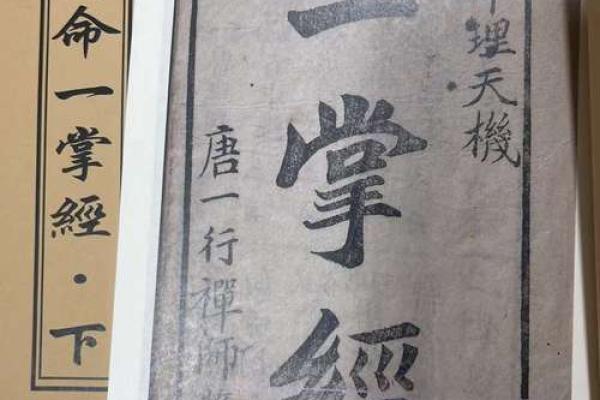 理天機
一掌經
唐一行禪師
命一掌經·下